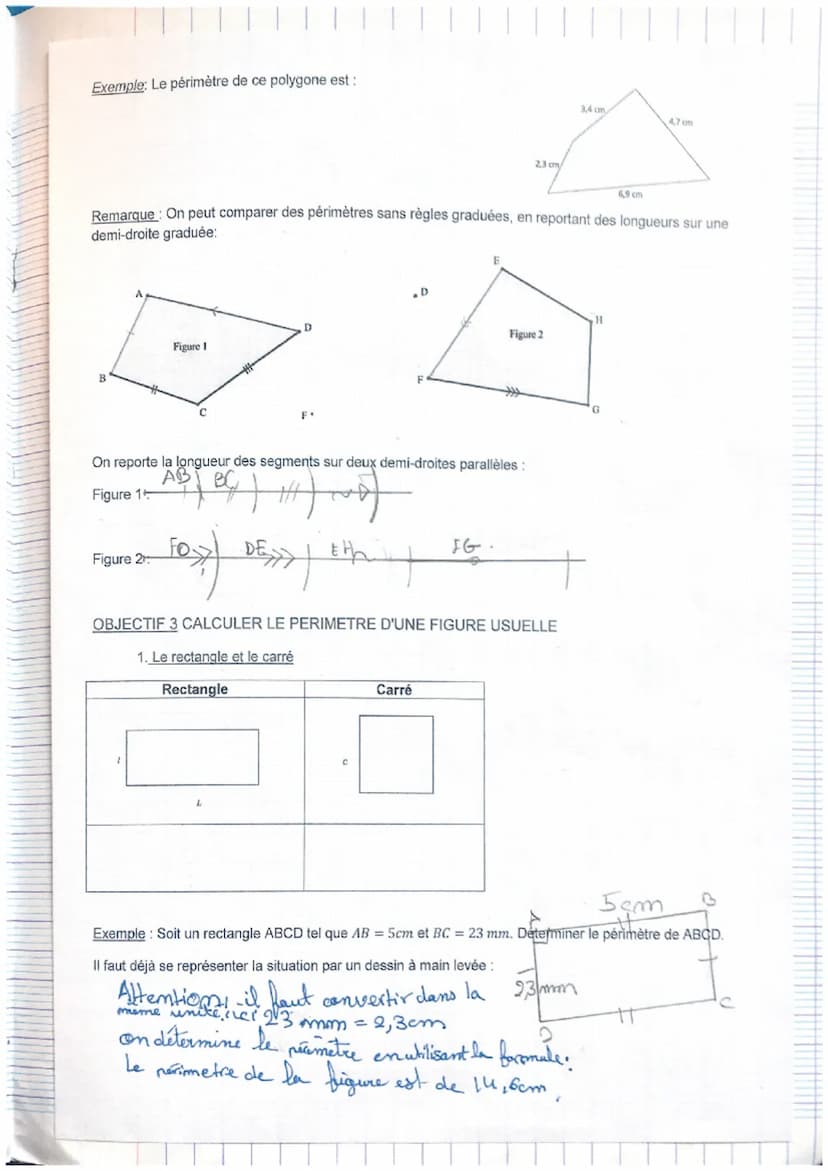 Exemple: Le périmètre de ce polygone est :
3,4 cm
4,7 cm
2,3 cm
6,9 cm
Remarque : On peut comparer des périmètres sans règles graduées, en reportant des longueurs sur une
demi-droite graduée:
E
A
D
D
H
Figure 1
Figure 2
B
F
C
F
G
On reporte la longueur des segments sur deux demi-droites parallèles :
AB BC
Figure 1:
DE
Figure 2:
OBJECTIF 3 CALCULER LE PERIMETRE D'UNE FIGURE USUELLE
1. Le rectangle et le carré
Rectangle Carré
l
c
L
5cm B
A
Exemple : Soit un rectangle ABCD tel que AB = 5cm et BC = 23 mm. Déterminer le périmètre de ABCD.
Il faut déjà se représenter la situation par un dessin à main levée :
23mm
C
D
Attention, il faut convertir dans la
même unité, ici 23 mm = 2,3cm
on détermine le périmètre en utilisant la formule:
Le périmetre de la figure est de 14,6cm.